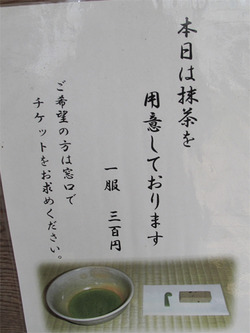 本日は抹茶を
用意しております
一服 三百円
ご希望の方は窓口で
チケットをお求めください。